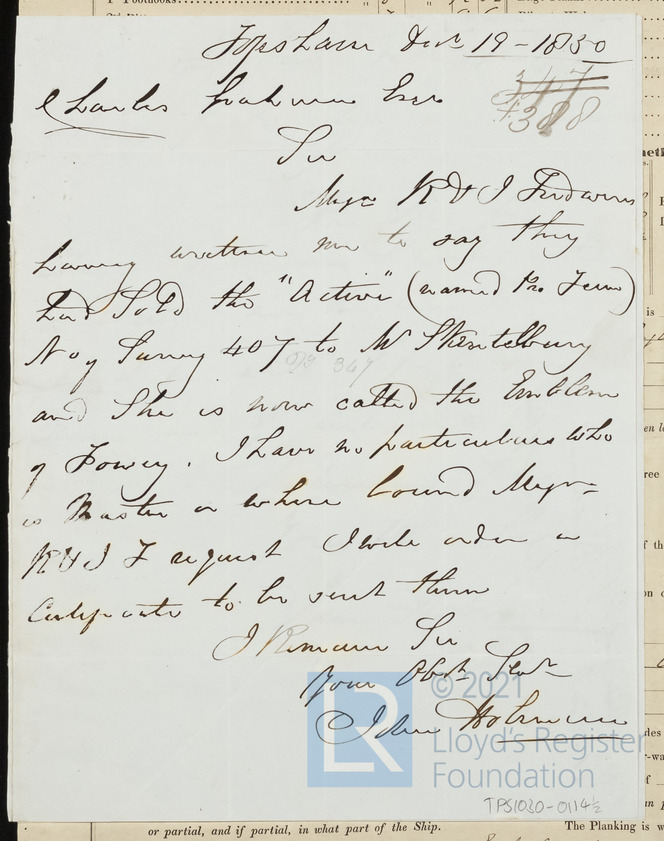 Topsham Decr 19 - 1850
347
388
Charles Graham Esqr
Sir
Messrs R & J
having written me to say they
had Sold the "Active" (named Pro Tem)
No of Survey 407 to Mr
347
and She is now called the Emblem
of Fowey. I have no particulars who
is Master or where bound Messrs
R & J F request I will order a
Certificate to be sent them
I Remain Sir
Your Obdt Servt
John Holman
© 2021
LR
Lloyd's Register
Foundation
TPS1030-0114½
or partial, and if partial, in what part of the Ship.
The Planking is w